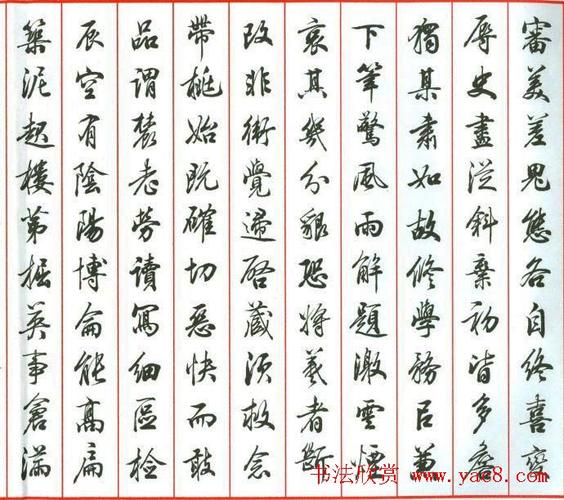 審美差態各自终喜齊
辱史盡從斜棄初皆多
獨某肅如故修學務巨兼
下筆驚風雨解題激雲煙
哀其幾分貌恐將羲者斷
改非術覺啓藏須救念
帶梃始既確切惡快而敢
品謂老勞讀寫細區檢
辰空有陰陽博侖能高扁
築泥起樓第掘英事倉滿
书法欣赏 www.yac8.com